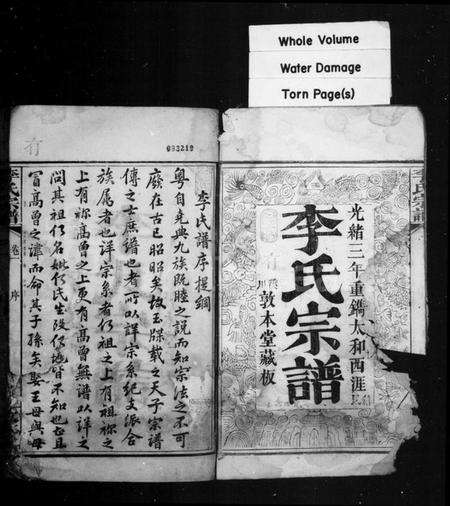 Whole Volume
Water Damage
Torn Page(s)
093219
李氏宗譜
光緒三年重鐫太和西涯
李氏宗譜
敦本堂藏板
李氏譜序提綱
粤自堯典九族既睦之說而知宗法之不可
廢在古已昭昭矣故玉牒載之天子宗譜
傳之士庶譜也者所以詳宗系紀支派合
族屬者也詳宗系者何祖之上有祖祢之
上有祢高曾之上更有高曾無譜以詳之
問其祖何名妣何氏生歿何地皆不知也且
冒高曾之諱而命其子孫矣娶王母與母
李氏宗譜
卷
序